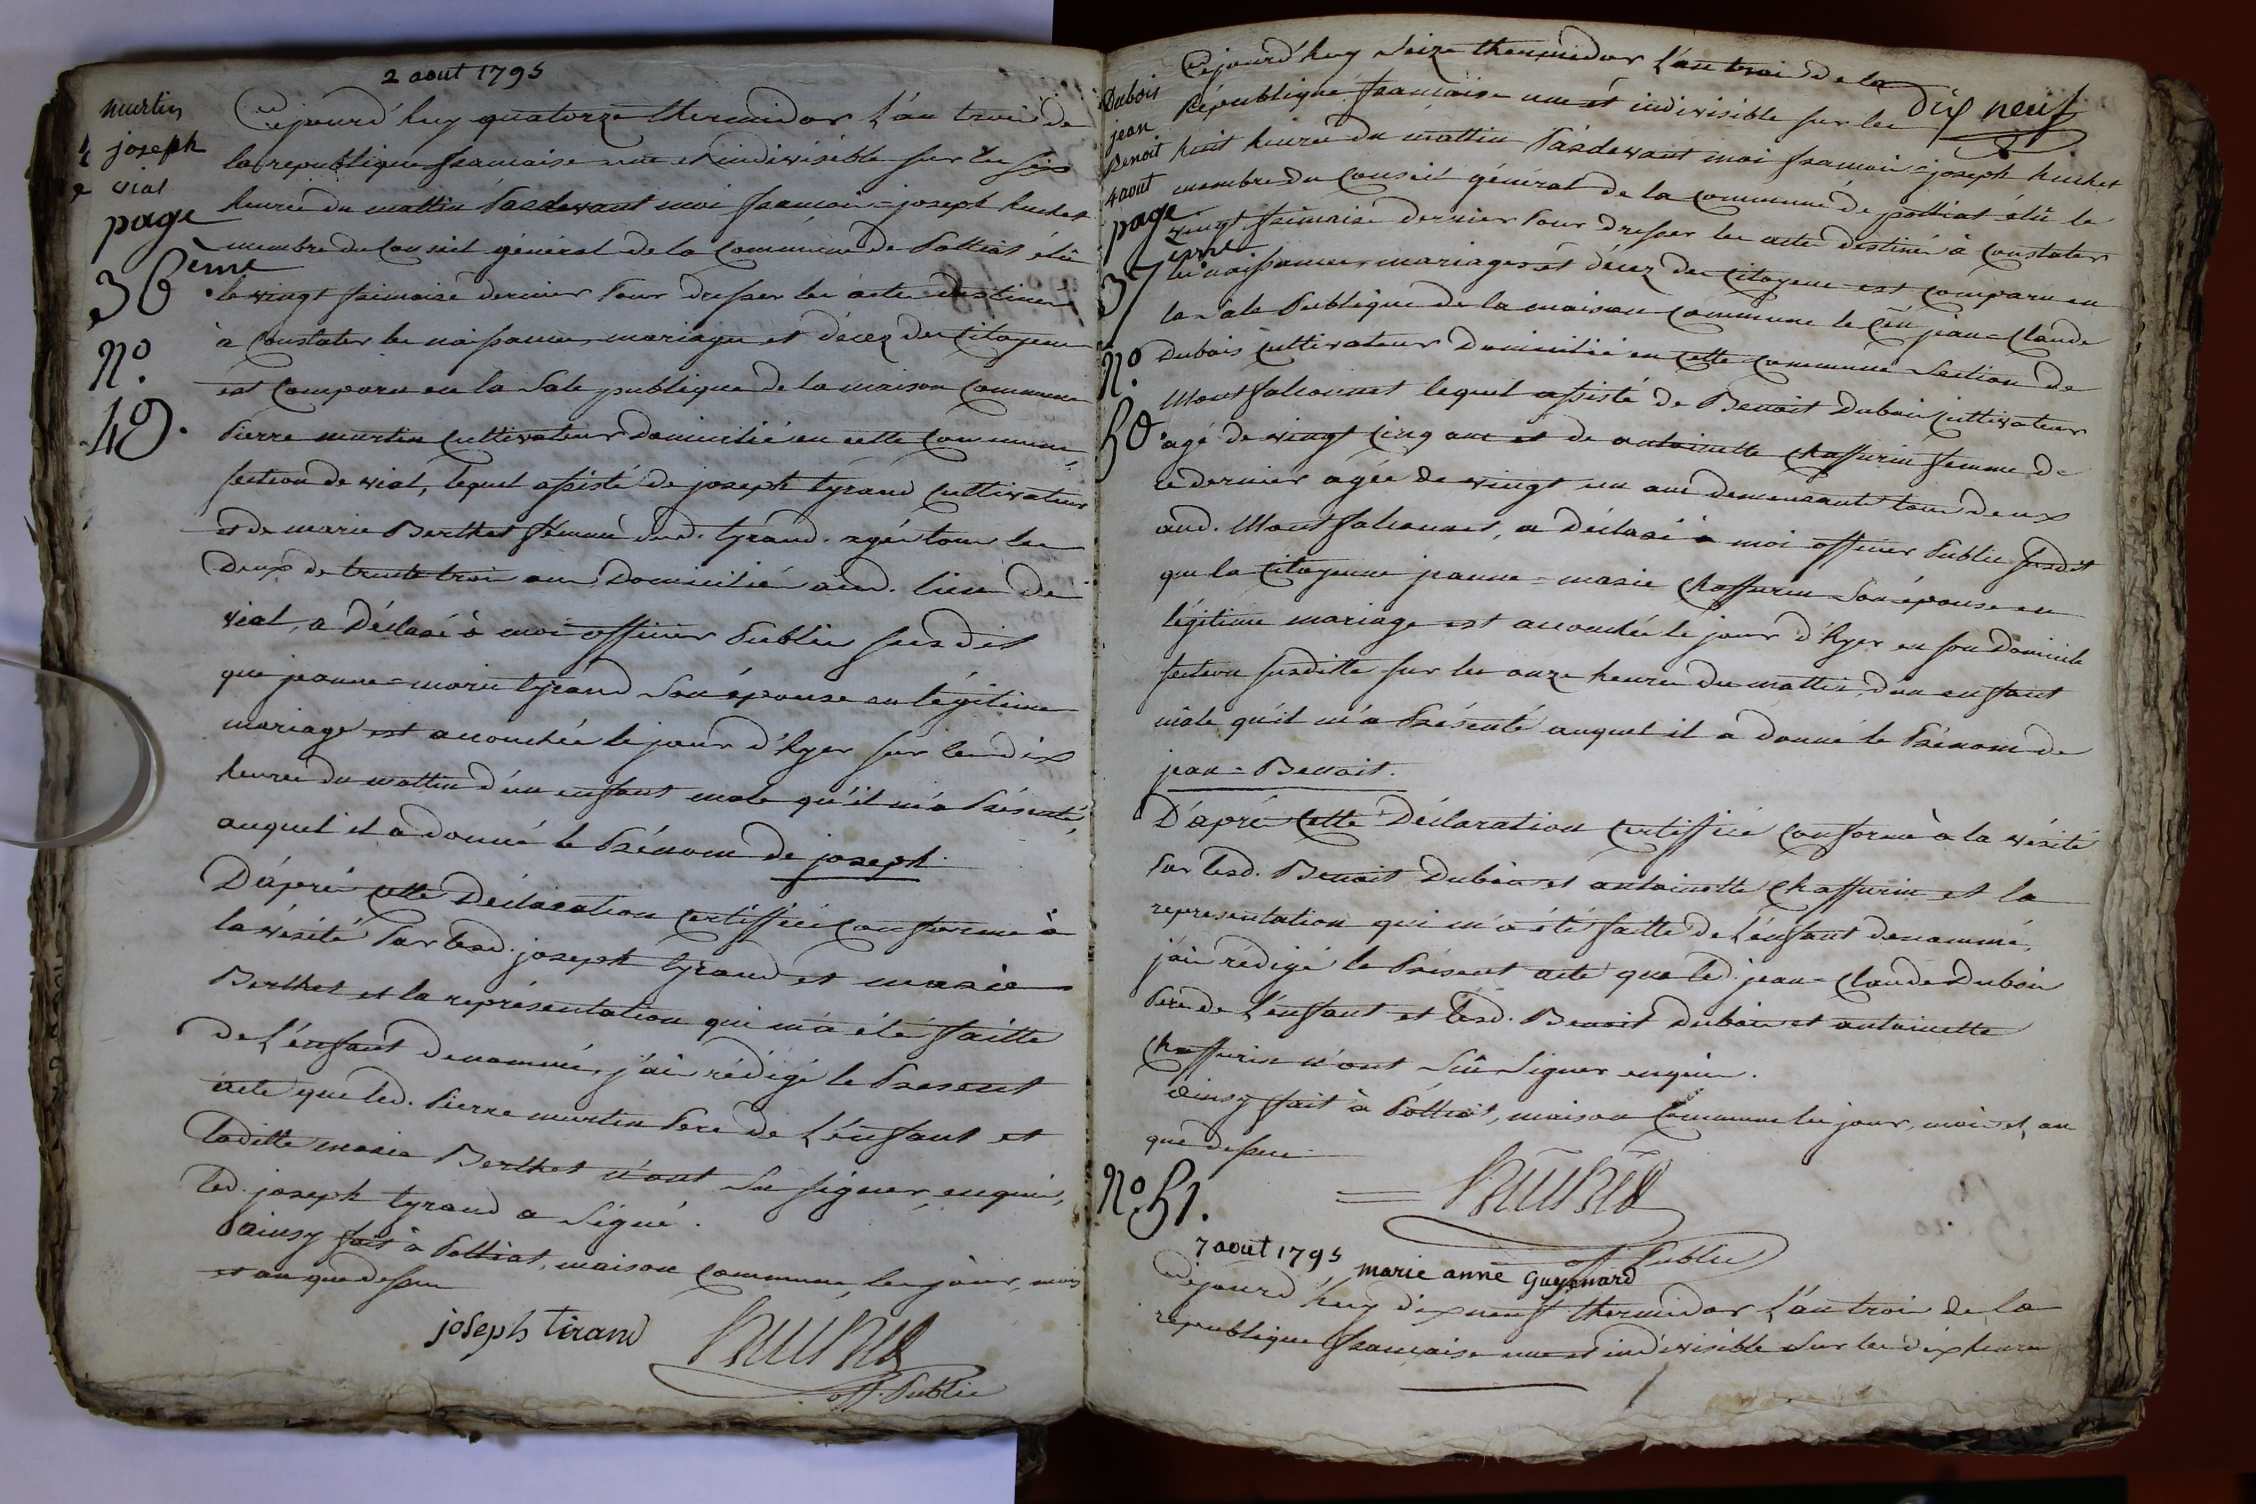 2 aout 1795
murtin
joseph
vial
page
36ème
N°.
49.
Cejourd'huy quatorze thermidor l'an trois de
la republique francaise une et indivisible sur les six
heures du mattin Pardevant moi francois=joseph huchet
membre du Conseil général de la Commune de Polliat élû
le vingt frimaire dernier Pour dresser les actes destinés
à Constater les naissances mariages et décez des Citoyens
est Comparu en la Sale publique de la maison Commune
Pierre murtin Cultivateur domicilié en cette Commune
section de vial, lequel assisté de joseph tyrand Cultivateur
et de marie Berthet femme dud. tyrand. agés tous les
deux de trente trois ans, domiciliés aud. lieu de
vial, a Déclaré à moi officier Public susdit
que jeanne=marie tyrand Son épouse en légitime
mariage est accouchée le jour d'hyer sur les dix
heures du mattin d'un enfant male qu'il m'a Présenté,
auquel il a donné le Prénom de joseph.
D'après cette Déclaration certiffiée Conforme à
la vérité Par lesd. joseph tyrand et marie
Berthet et la représentation qui m'a été faitte
de l'enfant denommé, j'ai rédigé le Present
acte que led. Pierre murtin Pere de l'enfant et
laditte marie Berthet n'ont Su signer enquis,
led. joseph tyrand a Signé.
ainsy fait à Polliat, maison Commune, les jour, mois
et an que dessus
joseph tirand huchet
off. Public
dix neuf
Dubois
jean
Benoit
4 aout
page
37eme
N°.
50.
Cejourd'huy Seize thermidor l'an trois de la
République francaise une et indivisible sur les
huit heures du mattin Pardevant moi francois=joseph huchet
membre du Conseil général de la Commune de polliat élû le
vingt frimaire dernier Pour dresser les actes destinés à Constater
les naissances, mariages et décez des Citoyens est Comparu en
la Sale Publique de la maison Commune le Cen jean=Claude
Dubois Cultivateur domicilié en cette Commune Section de
Montfalconnet lequel assisté de Benoit Dubois Cultivateur
agé de vingt cinq ans et de antoinette Chaffurin femme de
ce dernier agée de vingt un ans demeurants tous deux
aud. Montfalconnet, a Déclaré à moi officier Public susdit
que la Citoyenne jeanne=marie Chaffurin Son épouse en
légitime mariage est accouchée le jour d'hyer en son Domicile
section susditte sur les onze heures du mattin, d'un enfant
mâle qu'il m'a Présenté auquel il a donné le Prénom de
jean=Benoit.
D'après cette Déclaration certiffiée Conforme à la vérité
Par lesd. Benoit Dubois et antoinette Chaffurin et la
representation qui m'a été faitte de l'enfant denommé,
j'ai rédigé le Présent acte que led. jean=Claude Dubois
Pere de l'enfant et lesd. Benoit Dubois et antoinette
Chaffurin n'ont Sû Signer enquis.
ainsy fait à Polliat, maison Commune les jour, mois et an
que dessus
huchet
off Public
N° 51.
7 aout 1795 marie anne Guyonard
Cejourd'huy dix neuf thermidor l'an trois de la
republique francaise une et indivisible Sur les dix heures